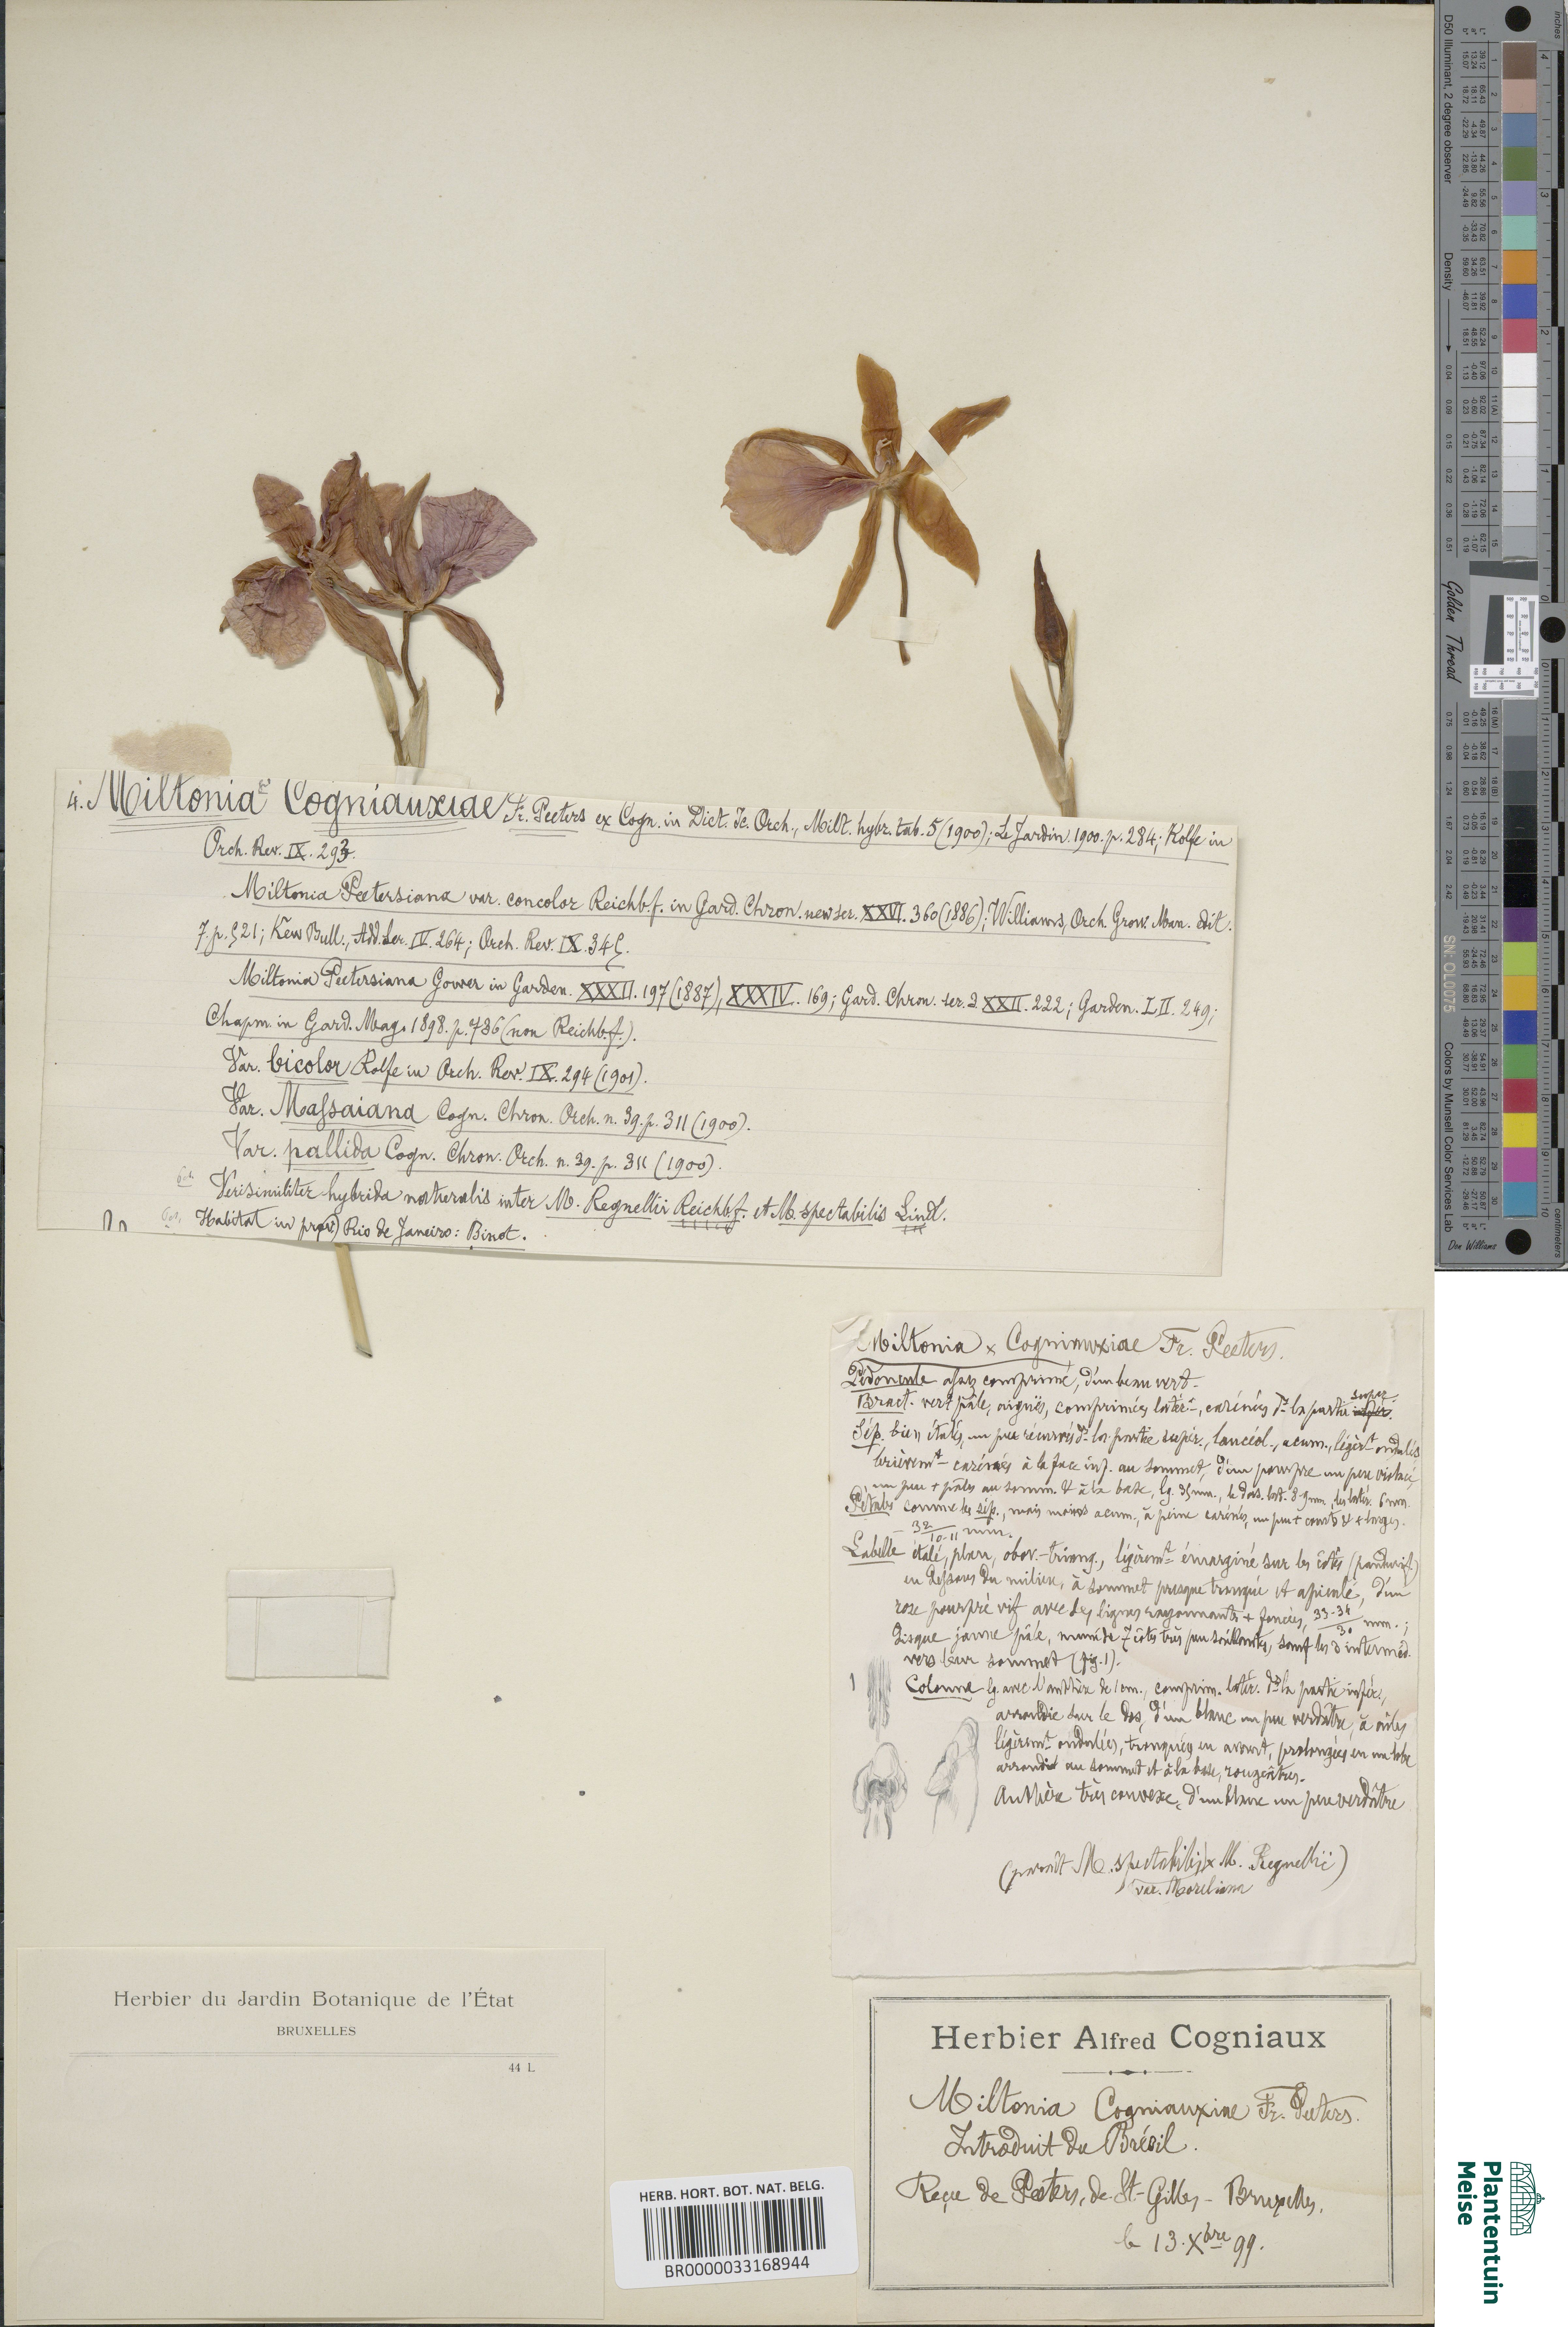 4. Miltonia × Cogniauxiae Fr. Peeters ex Cogn. in Dict. Ic. Orch., Milt. hybr. tab. 5 (1900); Le Jardin 1900. p. 284; Rolfe in
Orch. Rev. IX. 293.
Miltonia Peetersiana var. concolor Reichb.f. in Gard. Chron. new ser. XXVI. 360 (1886); Williams, Orch. Grow. Man. edit.
7. p. 521; Kew Bull., Add. Ser. IV. 264; Orch. Rev. IX. 345.
Miltonia Peetersiana Gower in Garden. XXXII. 197 (1887), XXXIV. 169; Gard. Chron. ser. 3 XXII. 222; Garden. LII. 249;
Chapm. in Gard. Mag. 1898. p. 736 (non Reichb.f.).
Var. bicolor Rolfe in Orch. Rev. IX. 294 (1901).
Var. Massaiana Cogn. Chron. Orch. n. 39. p. 311 (1900).
Var. pallida Cogn. Chron. Orch. n. 39. p. 311 (1900).
Verisimiliter hybrida naturalis inter M. Regnellii Reichb.f. et M. spectabilis Lindl.
Habitat in prov. Rio de Janeiro: Binot.
Miltonia × Cogniauxiae Fr. Peeters.
Pédoncule assez comprimé, d'un beau vert.
Bract. vert pâle, aiguës, comprimées latért, carénées ds la partie super.
Sép. bien étalés, un peu récurvés ds la partie supér., lancéol., acum., légèrt ondulés,
brièvemt carénés à la face inf. au sommet, d'un pourpre un peu violacé,
un peu + pâles au somm. & à la base, lg. 35 mm., le dors. lat. 8-9 mm., les latér. 6 mm.
Pétales comme les sép., mais moins acum., à peine carénés, un peu + courts & + larges.
32/10-11 mm.
Labelle étalé, plan, obov.-triang., légèremt émarginé sur les côtés (pandurif.)
en dessous du milieu, à sommet presque tronqué et apiculé, d'un
rose pourpré vif avec des lignes rayonnantes + foncées, 33-34/30 mm.;
disque jaune pâle, muni de 7 côtes très peu saillantes, sauf les 3 interméd.
vers leur sommet (fig. 1).
1
Colonne lg. avec l'anthère de 1 cm., comprim. latér. ds la partie infér.,
arrondie sur le dos, d'un blanc un peu verdâtre, à ailes
légèremt ondulées, tronquées en avant, prolongées en un lobe
arrondi au sommet et à la base, rougeâtres.
Anthère très convexe, d'un blanc un peu verdâtre
(paraît M. spectabilis × M. Regnellii)
var. Moreliana
Herbier du Jardin Botanique de l'État
BRUXELLES
44 L
Herbier Alfred Cogniaux
Miltonia Cogniauxiae Fr. Peeters.
Introduit du Brésil.
Reçu de Peeters, de St-Gilles-Bruxelles.
le 13 Xbre 99.
HERB. HORT. BOT. NAT. BELG.
BR0000033168944
Plantentuin
Meise
D50 Illuminant, 2 degree observer
Density
Golden Thread
SN: OL0075
Colors by Munsell Color Services Lab
Don Williams
inches
centimeters